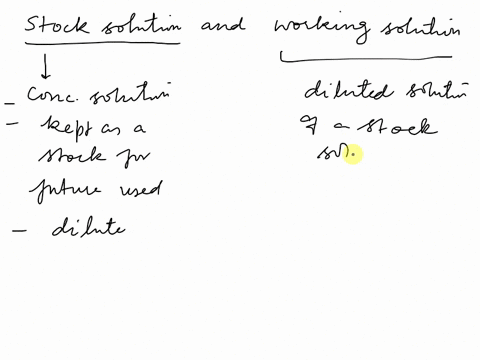 Stock solution and working solution
- Conc. solution
- kept as a
stock for
future used
- dilute
diluted solution
of a stock
sol.